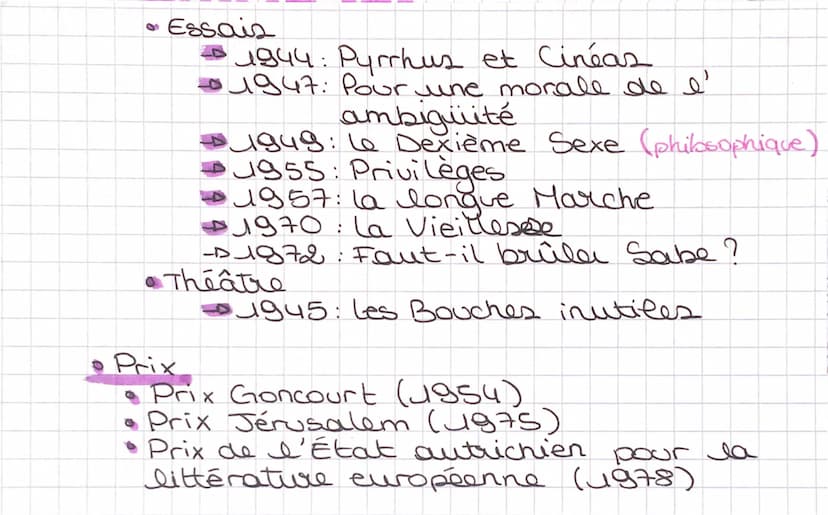 • Essais
→ 1944 : Pyrrhus et Cinéas
→ 1947 : Pour une morale de l'
ambigüité
→ 1949 : Le Dexième Sexe (philosophique)
→ 1955 : Privilèges
→ 1957 : La longue Marche
→ 1970 : La Vieillesse
→ 1972 : Faut-il brûler Sabe ?
• Théâtre
→ 1945 : Les Bouches inutiles
• Prix
• Prix Goncourt (1954)
• Prix Jérusalem (1975)
• Prix de l'État autrichien pour la
littérature européenne (1978)